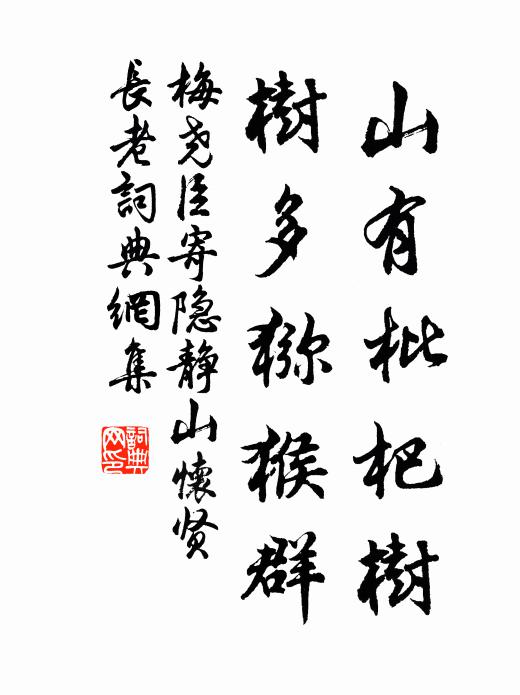 山有枇杷樹
樹多猕猴群
梅尧臣寄隐静山懷贤
長老詞典網集
詞典
网印